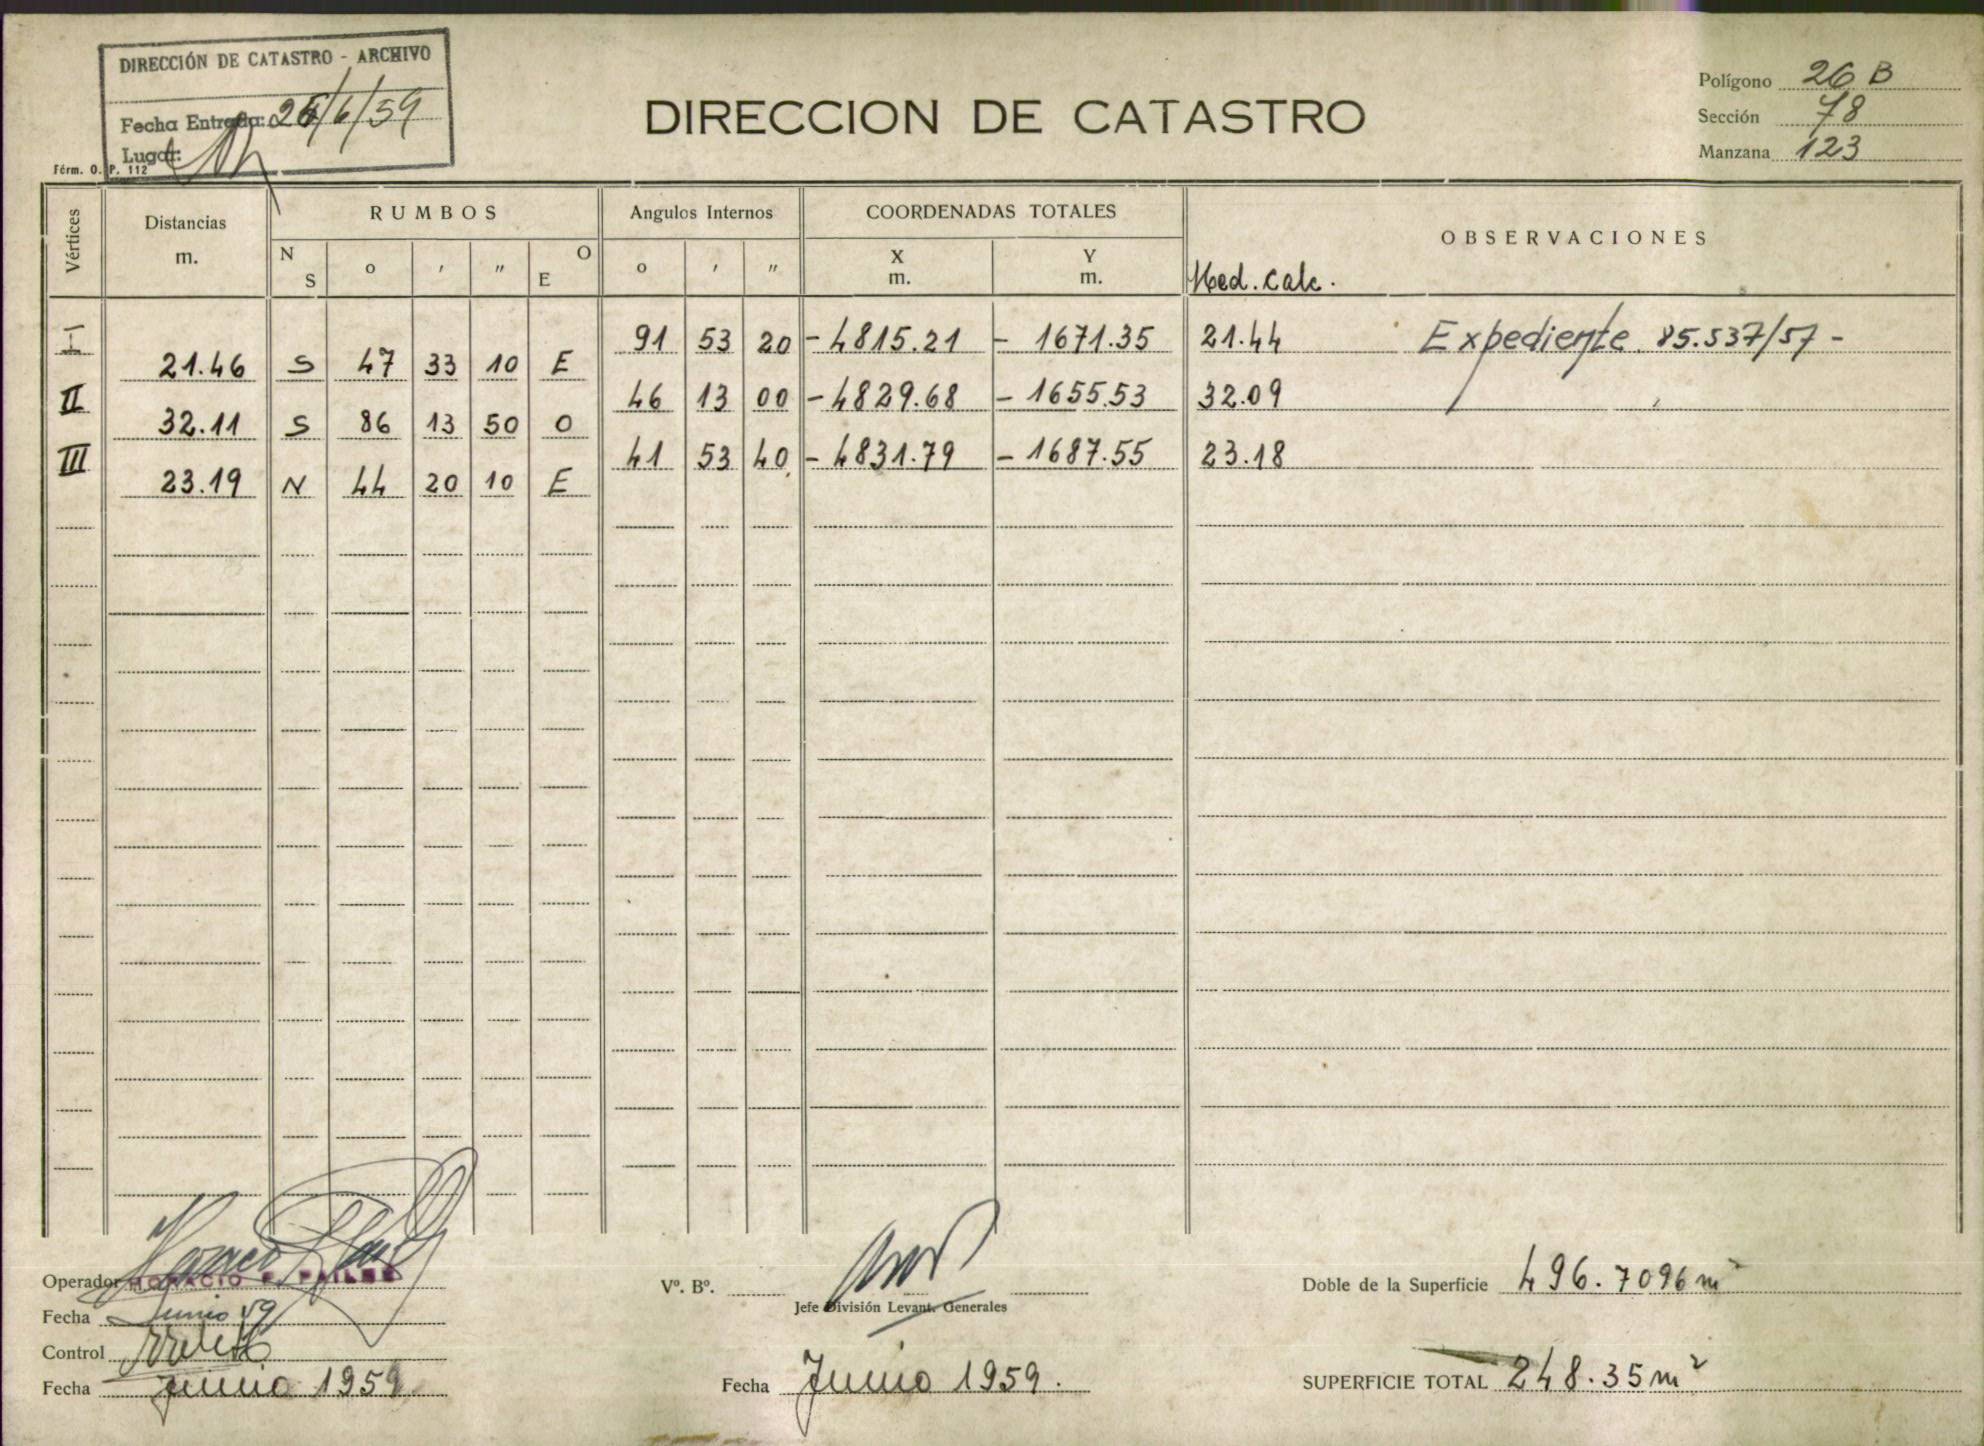 DIRECCIÓN DE CATASTRO - ARCHIVO
Fecha Entrada: 26/6/59
Lugar:
Fórm. O. P. 112
DIRECCION DE CATASTRO
Polígono 26 B
Sección 78
Manzana 123
Vértices Distancias m. RUMBOS Angulos Internos COORDENADAS TOTALES OBSERVACIONES
N S o ' " O E o ' " X m. Y m. Med. Calc.
I 91 53 20 - 4815.21 - 1671.35 21.44 Expediente 85.537/57 -
21.46 S 47 33 10 E
II 46 13 00 - 4829.68 - 1655.53 32.09
32.11 S 86 13 50 O
III 41 53 40 - 4831.79 - 1687.55 23.18
23.19 N 44 20 10 E
Operador HORACIO
Fecha Junio 59
Control
Fecha Junio 1959
Vº. Bº.
Jefe División Levant. Generales
Fecha Junio 1959.
Doble de la Superficie 496.7096 m²
SUPERFICIE TOTAL 248.35 m²